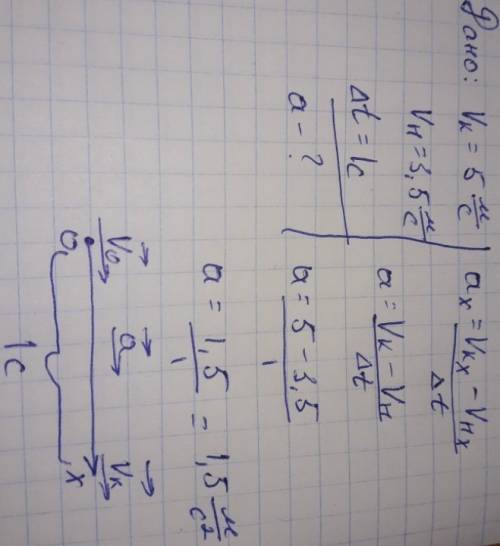 Дано:
Vк = 5 м/с
Vн = 3,5 м/с
Δt = 1с
a - ?
aₓ = (Vкₓ - Vнₓ)/Δt
a = (Vк - Vн)/Δt
a = (5 - 3,5)/1
a = 1,5/1 = 1,5 м/с²
V₀ a Vк
0 x
1с